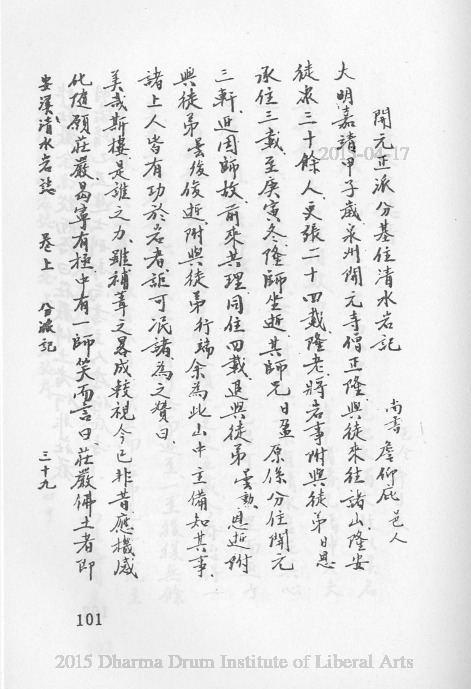 開元正派分基住清水岩記
尚書 詹仰庇 邑人
大明嘉靖甲子歲泉州開元寺僧正隆與徒來徃諸山隆安
徒衆三十餘人更張二十四載隆老將岩事附與徒弟日恩
承住三載至庚寅冬隆師坐逝其師兄日盈原係分住開元
三軒迎因師故前來共理同住四載退與徒弟雲勲恩逝附
與徒弟雲後後逝附與徒弟行端余為此山中主備知其事
諸上人皆有功於岩者詎可泯諸為之贊曰
美哉斯樓是誰之力雖補葺之畧成較視今已非昔應機感
化隨願莊嚴曷寧有極中有一師笑而言曰莊嚴佛土者即
安溪清水岩誌 卷上 分派記 三十九
101
2015-04-17
2015 Dharma Drum Institute of Liberal Arts